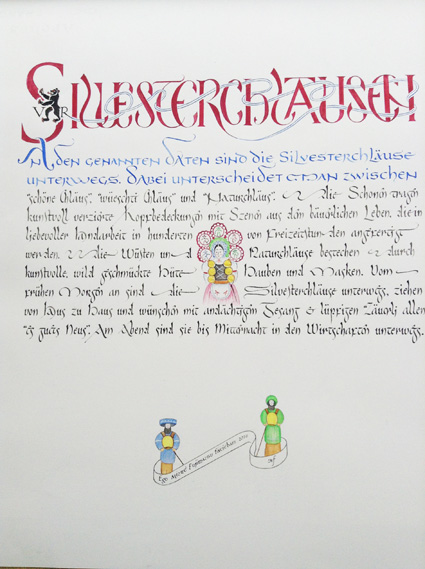 SILVESTERCHLAUSEN
V R
AN DEN GENANNTEN DATEN SIND DIE SILVESTERCHLÄUSE
UNTERWEGS. DABEI UNTERSCHEIDET MAN ZWISCHEN
"schöne Chläus", "wüeschti Chläus" und "Naturchläus". Die Schönen tragen
kunstvoll verzierte Kopfbedeckungen mit Szenen aus dem bäuerlichen Leben, die in
liebevoller Handarbeit in hunderten von Freizeitstunden angefertigt
werden. Die Wüsten und Naturchläuse bestechen durch
kunstvolle, wild geschmückte Hüte Hauben und Masken. Vom
frühen Morgen an sind die Silvesterchläuse unterwegs, ziehen
von Haus zu Haus und wünschen mit andächtigem Gesang & lüpfigen Zäuerli allen
"ä guets Neus". Am Abend sind sie bis Mitternacht in den Wirtschaften unterwegs.